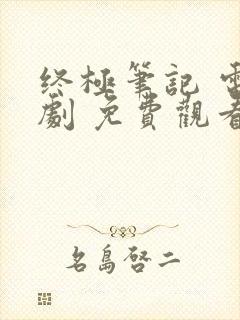 終極筆記 電
劇 免費觀看
名島啓二